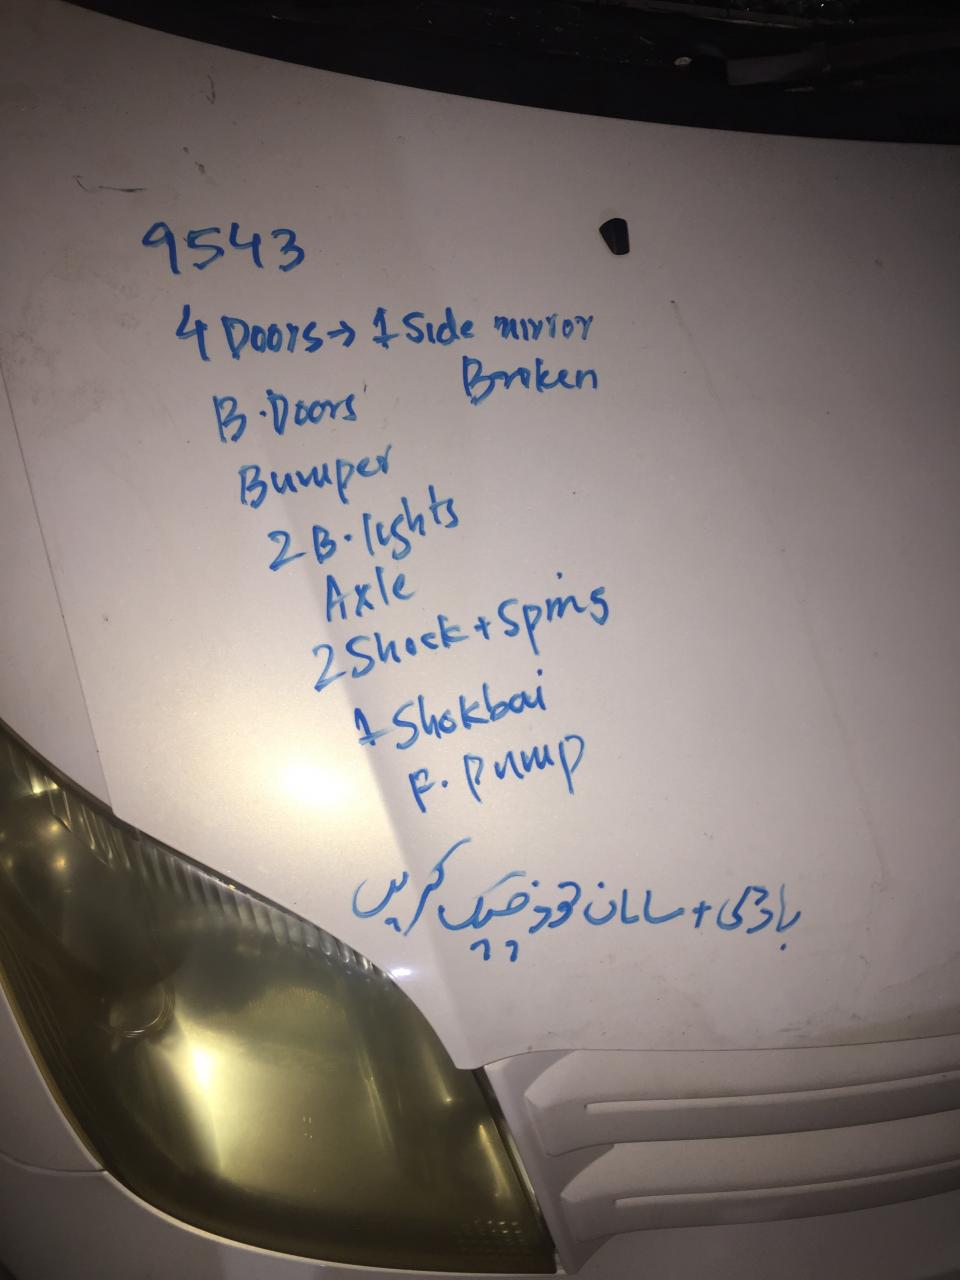 9543
4 Doors → 1 Side mirror
Broken
B.Doors
Bumper
2 B.lights
Axle
2 Shock + Spring
1 Shokbai
F. Pump
باڈی + سامان خود چیک کریں